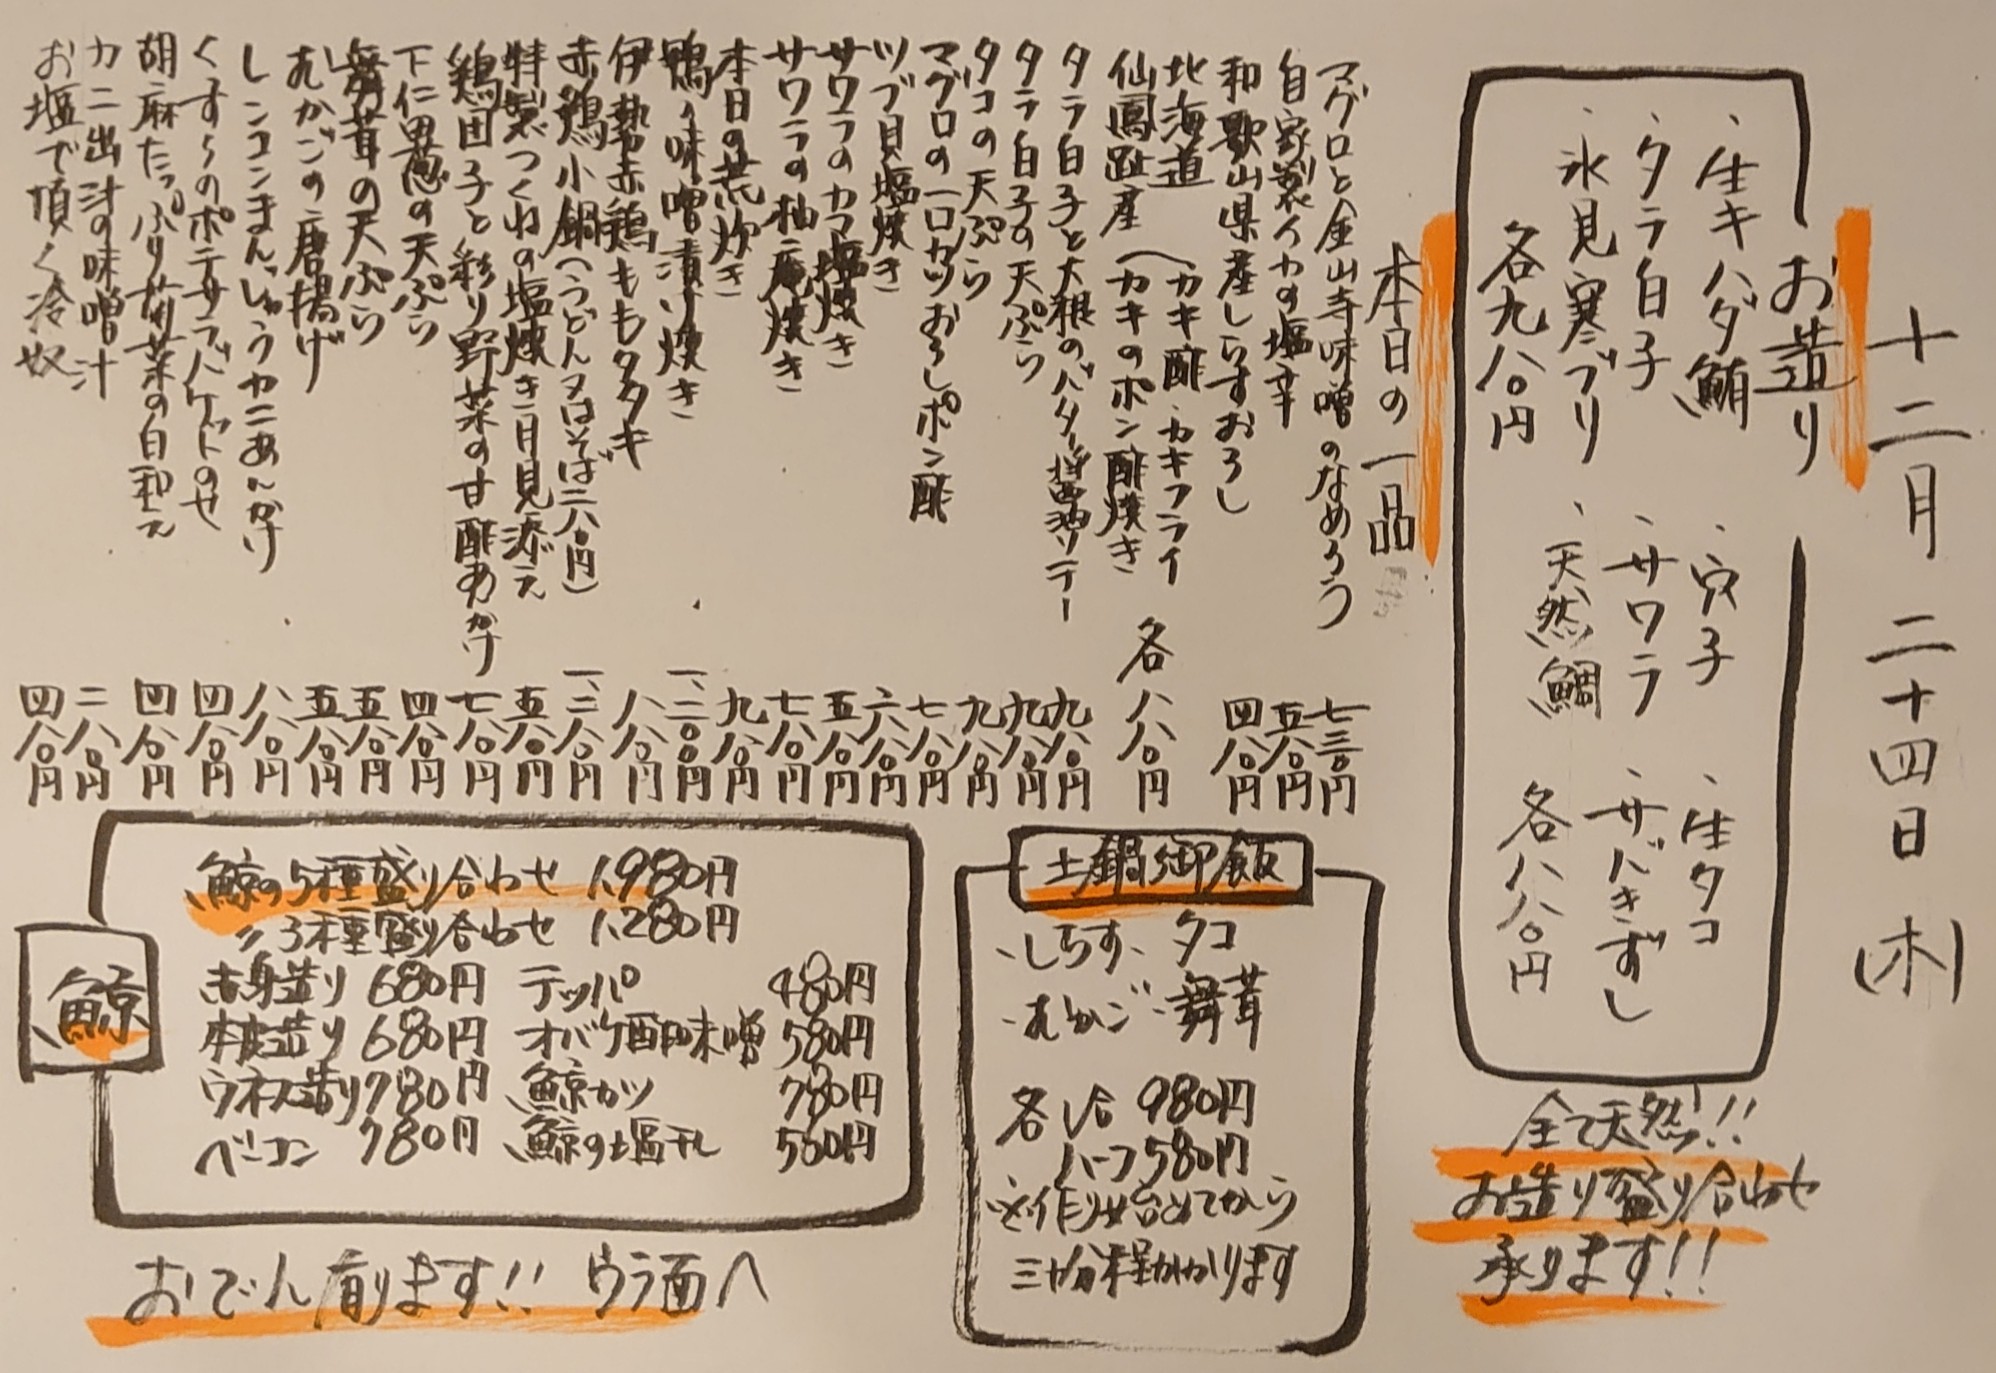 十二月二十四日(木)
お造り
・生キハダ鮪 ・穴子 ・生タコ
・タラ白子 ・サワラ ・サバきずし
・氷見寒ブリ ・天然鯛
各九八〇円 各八八〇円
全て天然!!
お造り盛り合わせ
承ります!!
本日の一品
マグロと金山寺味噌のなめろう 七三〇円
自家製イカの塩辛 五八〇円
和歌山県産しらすおろし 四八〇円
北海道
仙鳳趾産
(カキ酢・カキフライ
(カキのポン酢焼き
各八八〇円
タラ白子と大根のバター醤油ソテー 九八〇円
タラ白子の天ぷら 九八〇円
タコの天ぷら 九八〇円
マグロの一口カツおろしポン酢 七八〇円
ツブ貝塩焼き 六八〇円
サワラのカマ塩焼き 五八〇円
サワラの柚庵焼き 七八〇円
本日の荒炊き 九八〇円
鴨の味噌漬け焼き 一、二〇〇円
伊勢赤鶏ももタタキ 八八〇円
赤鶏小鍋(うどん又はそば二八〇円) 一、二八〇円
特製つくねの塩焼き月見添え 五八〇円
鶏団子と彩り野菜の甘酢あんかけ 七八〇円
下仁田葱の天ぷら 四八〇円
舞茸の天ぷら 五八〇円
むかごの唐揚げ 五八〇円
レンコンまんじゅうカニあんかけ 八八〇円
くずらのポテサラバケットのせ 四八〇円
胡麻たっぷり菊菜の白和え 四八〇円
カニ出汁の味噌汁 二八〇円
お塩で頂く冷奴 四八〇円
土鍋御飯
・しらす ・タコ
・むかご ・舞茸
各1合 980円
ハーフ580円
※作り始めてから
三十分程かかります
鯨
鯨の5種盛り合わせ 1,980円
〃3種盛り合わせ 1,280円
赤身造り 680円 テッパ 480円
本皮造り 680円 オバケ酢味噌 580円
ウネス造り 780円 鯨カツ 780円
ベーコン 780円 鯨の塩干し 580円
おでん有ります!! ウラ面へ